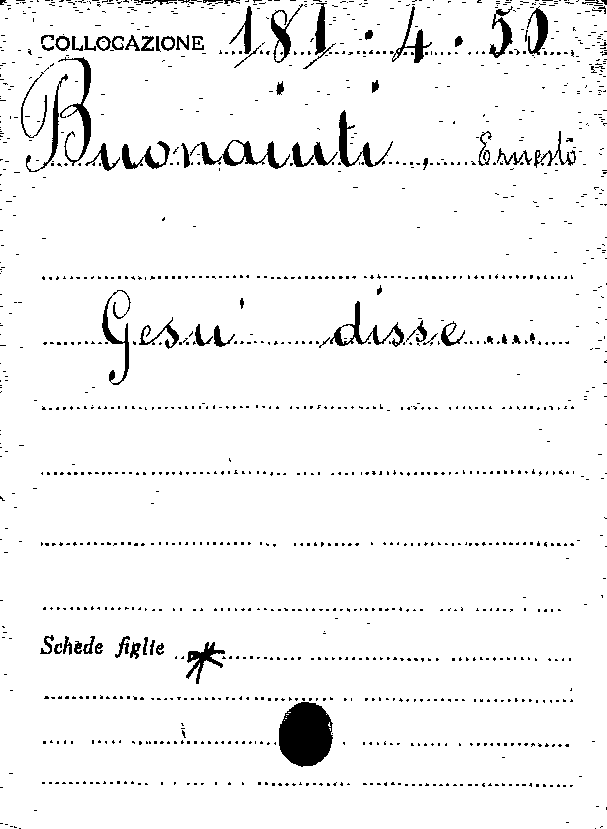 COLLOCAZIONE 181.4.50
Buonaiuti, Ernesto
Gesu' disse....
Schede figlie *